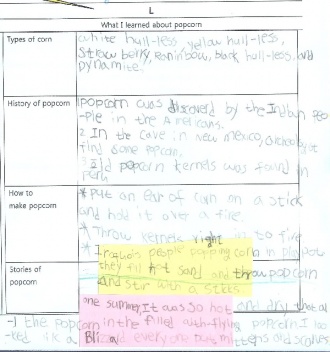 L
What I learned about popcorn
Types of corn
white hull-less yellow hull-less,
Straw berry, rainbow, black hull-less, and
dynamite.
History of popcorn
popcorn was by the Indian peo
-ple in the
2 In the cave in new mexico,
find some popcorn.
3 old popcorn kernels was found in
peru
How to
make popcorn
* Put on ear of corn on a stick
and hold it over a fire.
* Throw kernels right in to fire
* people popping corn in
they fill hot sand and throw popcorn
and stir with a sticks
Stories of
popcorn
one summer It was so hot and dry that al
-l the popcorn in the filled with flying popcorn I loo
-ked like a everyone put mittens and